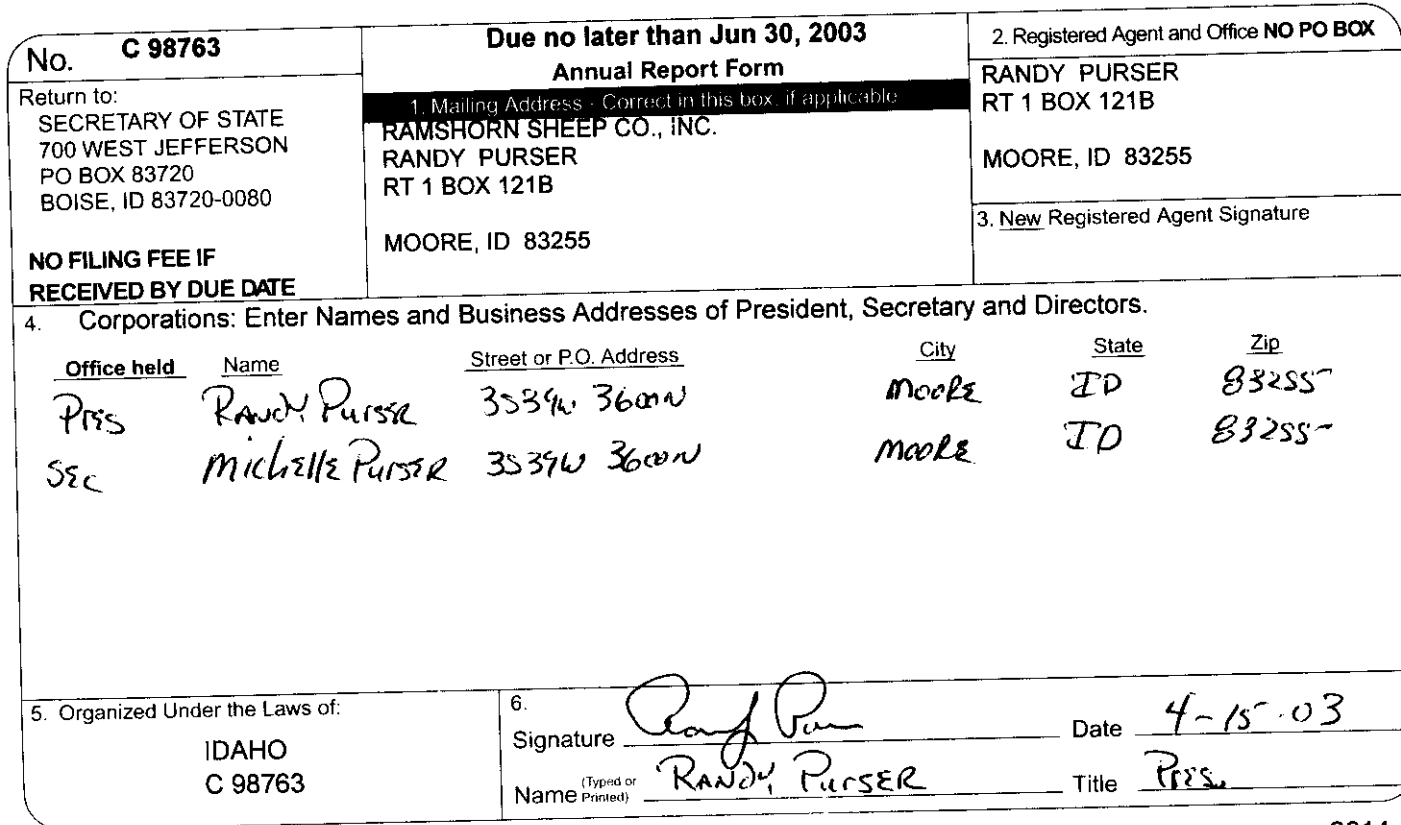 No. C 98763
Return to:
SECRETARY OF STATE
700 WEST JEFFERSON
PO BOX 83720
BOISE, ID 83720-0080
NO FILING FEE IF
RECEIVED BY DUE DATE
Due no later than Jun 30, 2003
Annual Report Form
1. Mailing Address - Correct in this box, if applicable
RAMSHORN SHEEP CO., INC.
RANDY PURSER
RT 1 BOX 121B
MOORE, ID 83255
2. Registered Agent and Office NO PO BOX
RANDY PURSER
RT 1 BOX 121B
MOORE, ID 83255
3. New Registered Agent Signature
4. Corporations: Enter Names and Business Addresses of President, Secretary and Directors.
Office held Name Street or P.O. Address City State Zip
Pres Randy Purser 3539W 3600N Moore ID 83255
Sec Michelle Purser 3539W 3600N Moore ID 83255
5. Organized Under the Laws of:
IDAHO
C 98763
6.
Signature Randy Purser Date 4-15-03
Name (Typed or Printed) Randy Purser Title Pres.